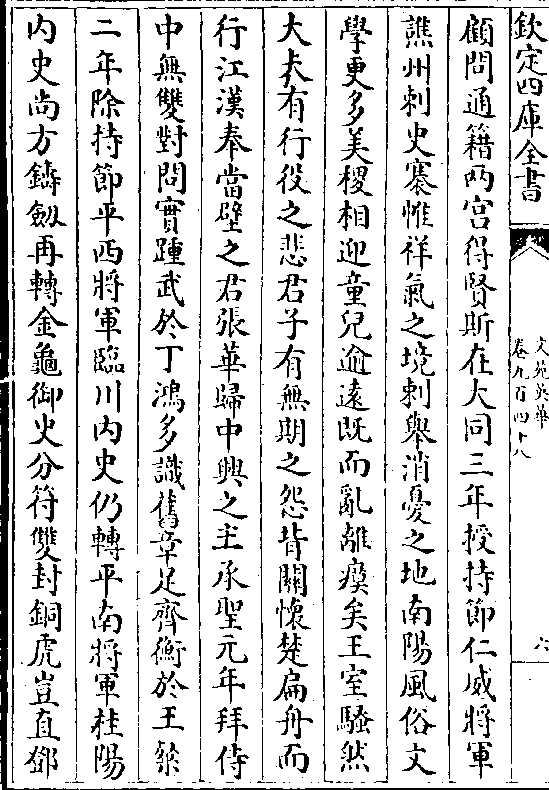 欽定四庫全書
文苑英華
卷九百四十八
六
顧問通籍两宫得賢斯在大同三年授持節仁威將軍
譙州刺史褰惟祥氣之境刺舉消憂之地南陽風俗文
學更多美稷相迎童兒逾遠既而亂離瘼矣王室騷然
大夫有行役之悲君子有無期之怨昔關懷楚扁舟而
行江漢奉當壁之君張華歸中興之主承聖元年拜侍
中無雙對問實踵武於丁鴻多識舊章足齊衡於王粲
二年除持節平西將軍臨川内史仍轉平南將軍桂陽
内史尚方鑄劒再轉金龜御史分符雙封銅虎豈直鄧